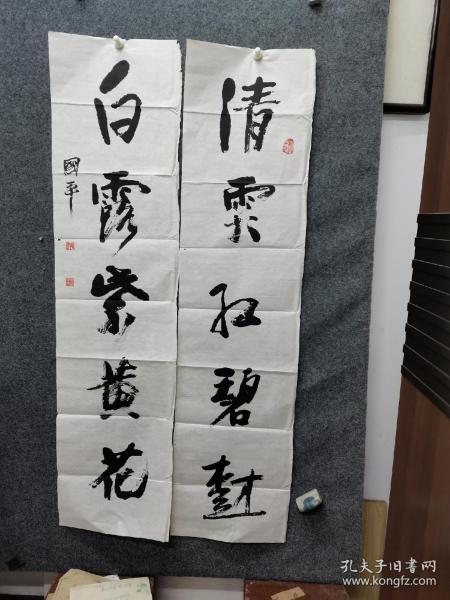 清霜红碧樹
白露紫黄花
國平
孔夫子旧书网
www.kongfz.com